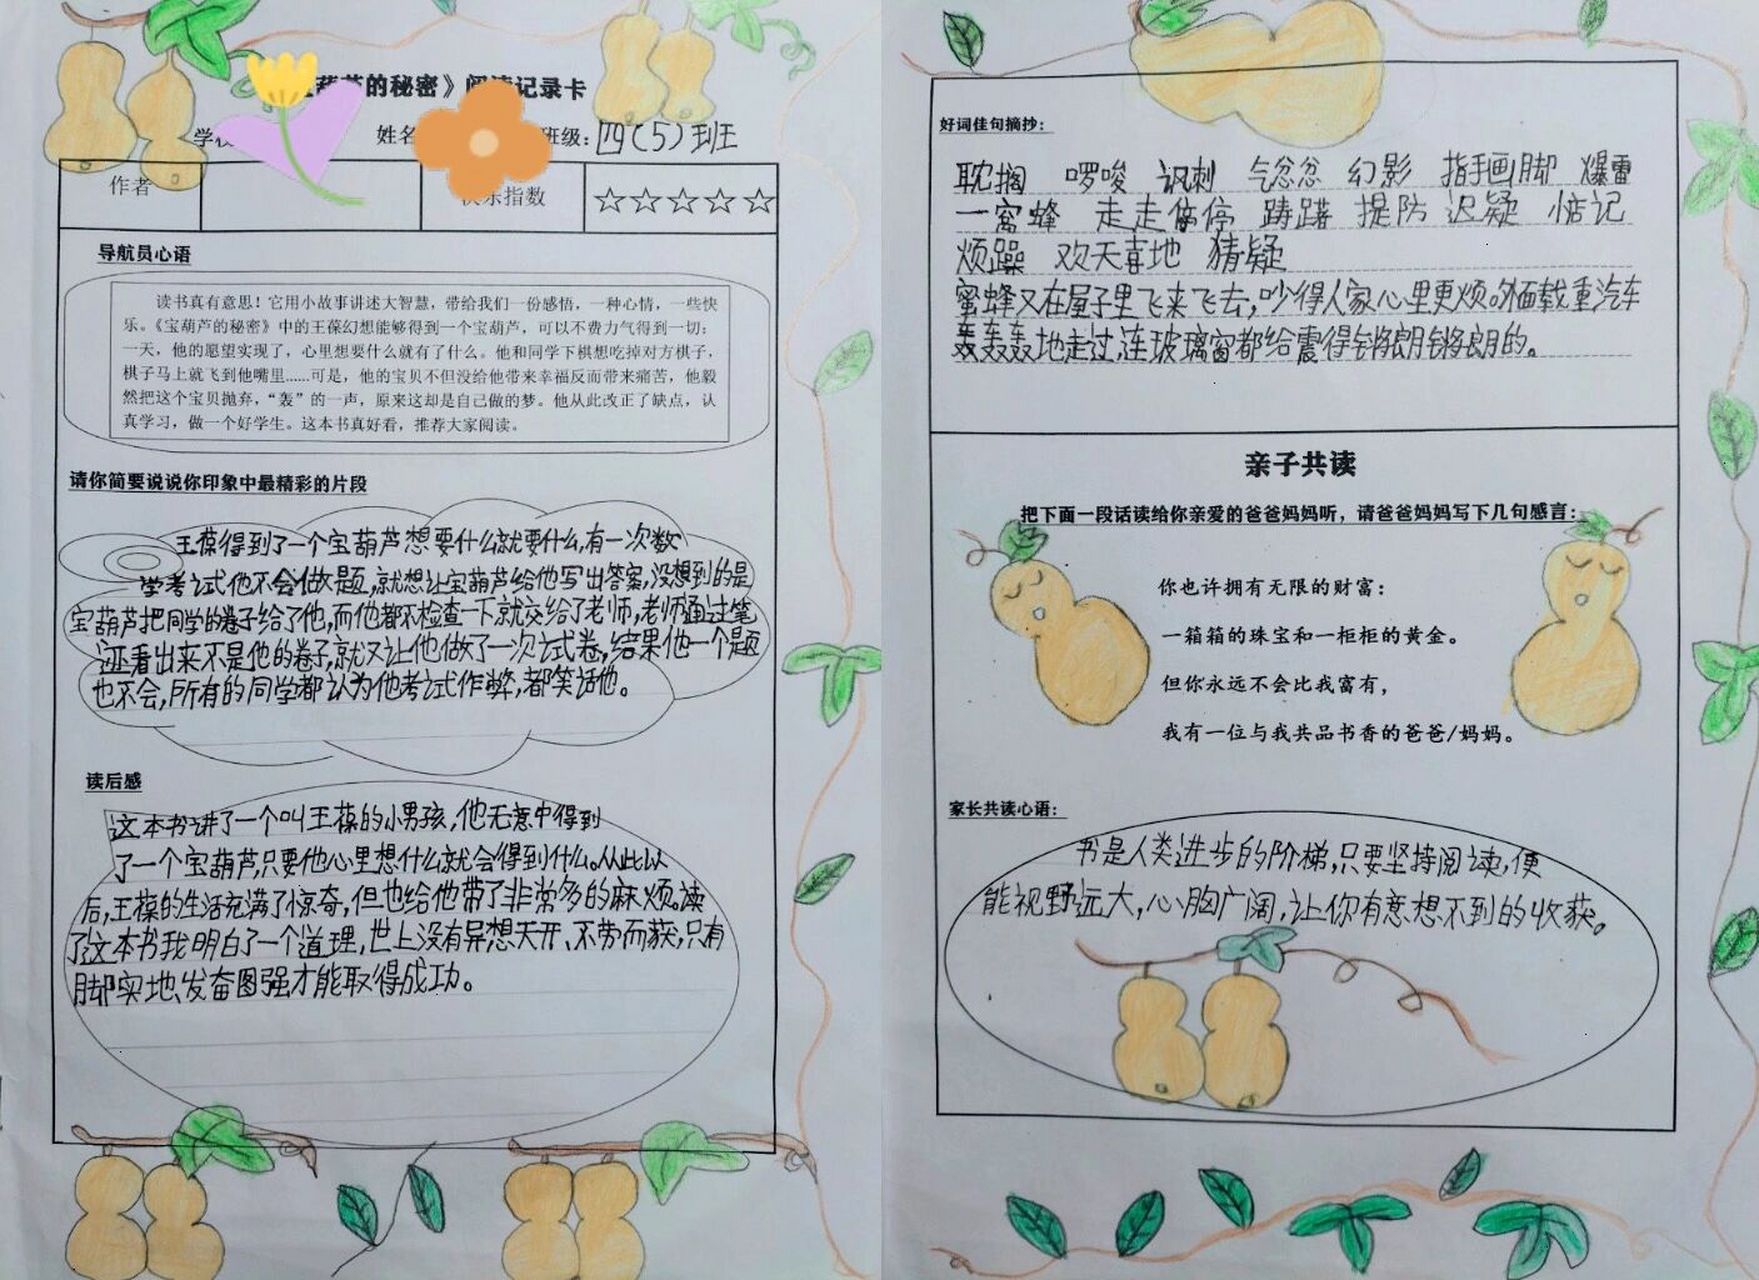 葫芦的秘密》阅读记录卡
学校
姓名
班级：四（5）班
作者
快乐指数
☆☆☆☆☆
导航员心语
读书真有意思！它用小故事讲述大智慧，带给我们一份感悟，一种心情，一些快
乐。《宝葫芦的秘密》中的王葆幻想能够得到一个宝葫芦，可以不费力气得到一切；
一天，他的愿望实现了，心里想要什么就有了什么。他和同学下棋想吃掉对方棋子，
棋子马上就飞到他嘴里……可是，他的宝贝不但没给他带来幸福反而带来痛苦，他毅
然把这个宝贝抛弃，“轰”的一声，原来这却是自己做的梦。他从此改正了缺点，认
真学习，做一个好学生。这本书真好看，推荐大家阅读。
请你简要说说你印象中最精彩的片段
王葆得到了一个宝葫芦想要什么就要什么，有一次数
学考试他不会做题，就想让宝葫芦给他写出答案，没想到的是
宝葫芦把同学的卷子给了他，而他都不检查一下就交给了老师，老师通过笔
迹看出来不是他的卷子，就又让他做了一次试卷，结果他一个题
也不会，所有的同学都认为他考试作弊，都笑话他。
读后感
这本书讲了一个叫王葆的小男孩，他无意中得到
了一个宝葫芦，只要他心里想什么就会得到什么。从此以
后，王葆的生活充满了惊奇，但也给他带了非常多的麻烦。读
了这本书我明白了一个道理，世上没有异想天开、不劳而获，只有
脚实地、发奋图强才能取得成功。
好词佳句摘抄：
耽搁 啰唆 讽刺 气忿忿 幻影 指手画脚 爆雷
一窝蜂 走走停停 踌躇 提防 迟疑 惦记
烦躁 欢天喜地 猜疑
蜜蜂又在屋子里飞来飞去，吵得人家心里更烦。外面载重汽车
轰轰轰地走过，连玻璃窗都给震得锵朗锵朗的。
亲子共读
把下面一段话读给你亲爱的爸爸妈妈听，请爸爸妈妈写下几句感言：
你也许拥有无限的财富：
一箱箱的珠宝和一柜柜的黄金。
但你永远不会比我富有，
我有一位与我共品书香的爸爸/妈妈。
家长共读心语：
书是人类进步的阶梯，只要坚持阅读，便
能视野远大，心胸广阔，让你有意想不到的收获。